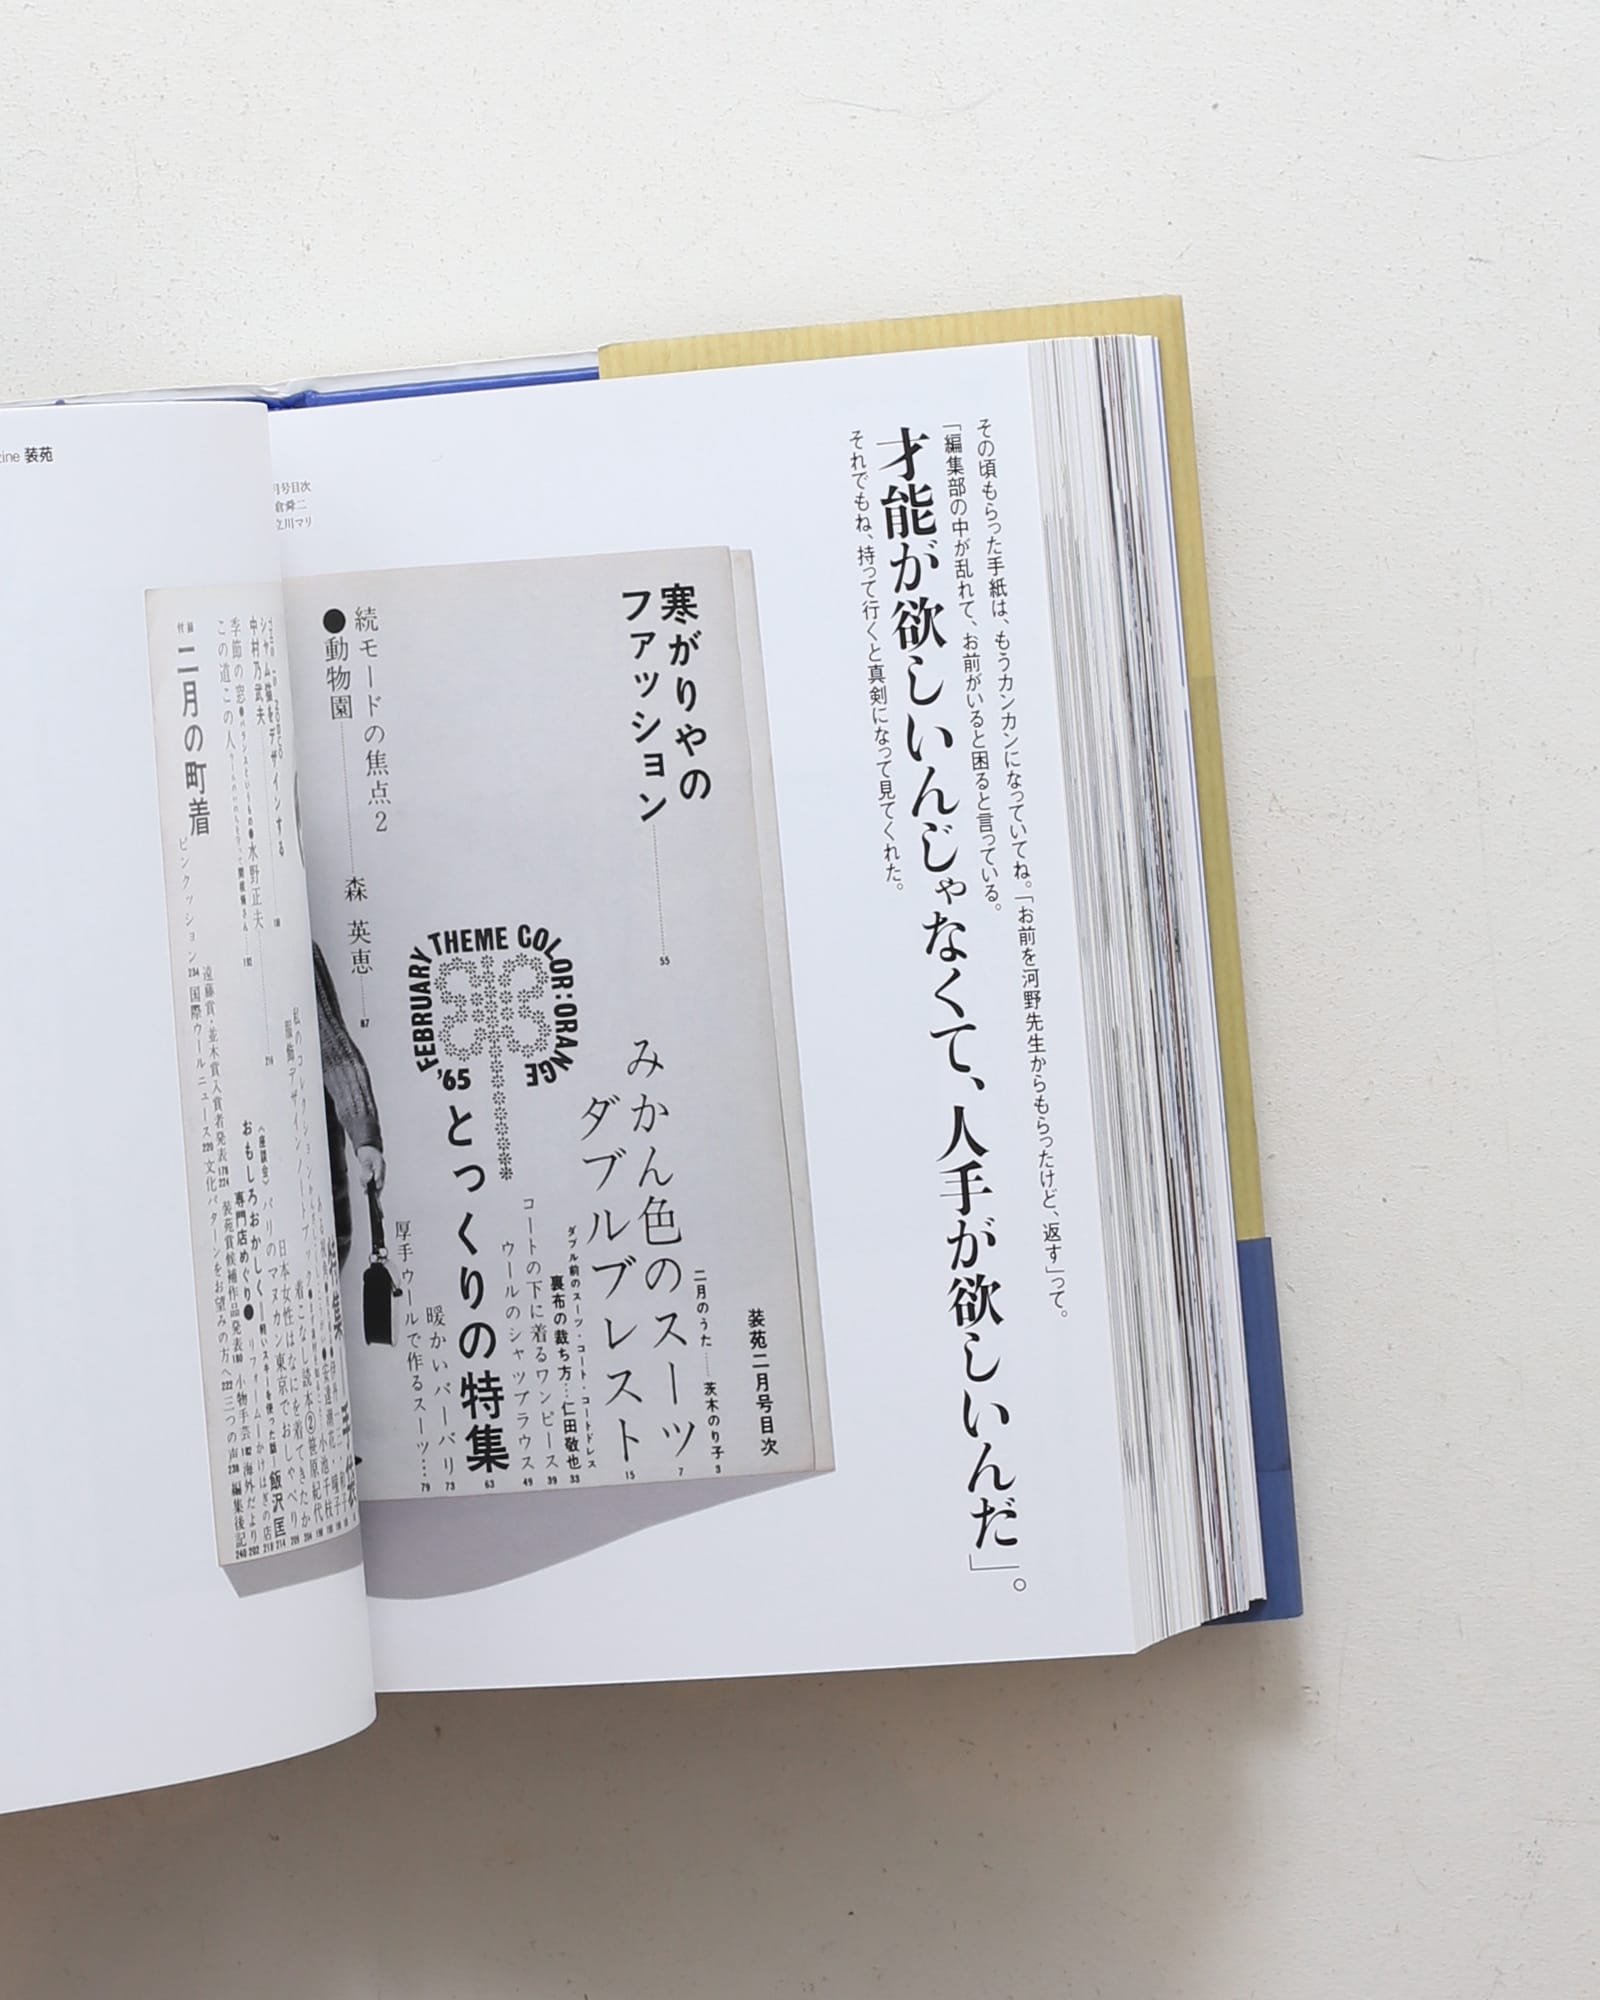 その頃もらった手紙は、もうカンカンになっていてね。「お前を河野先生からもらったけど、返す」って。
「編集部の中が乱れて、お前がいると困ると言っている。
才能が欲しいんじゃなくて、人手が欲しいんだ」。
それでもね、持って行くと真剣になって見てくれた。
装苑二月号目次
二月のうた……茨木のり子 3
みかん色のスーツ 7
ダブルブレスト 15
寒がりやの
ファッション 55
ダブル前のスーツ・コート・コートドレス
裏布の裁ち方…仁田敬也 33
コートの下に着るワンピース 39
ウールのシャツブラウス 49
FEBRUARY THEME COLOR:ORANGE '65
とっくりの特集 63
暖かいバーバリ 73
厚手ウールで作るスーツ… 79
続モードの焦点2
●動物園 森 英恵 87
月号目次
倉舜二
立川マリ
シャム猫をデザインする
中村乃武夫
水野正夫
季節の窓
この道この人
私のコレクション
服飾デザインノートブック
特集
安達瀬花
小池千枝
着こなし読本②笹原紀代
日本女性はなにを着てきたか
〈座談会〉パリのマヌカン東京でおしゃべり
おもしろおかしく 軽いスキーを使った話 飯沢匡 214
専門店めぐり●リフォームーかけはぎの店 218
付録
二月の町着
ピンクッション 234
国際ウールニュース 220
文化パターンをお望みの方へ 222
三つの声 238
編集後記 240
遠藤賞・並木賞入賞者発表
装苑賞候補作品発表 180
小物手芸 192
海外だより 202
zine 装苑